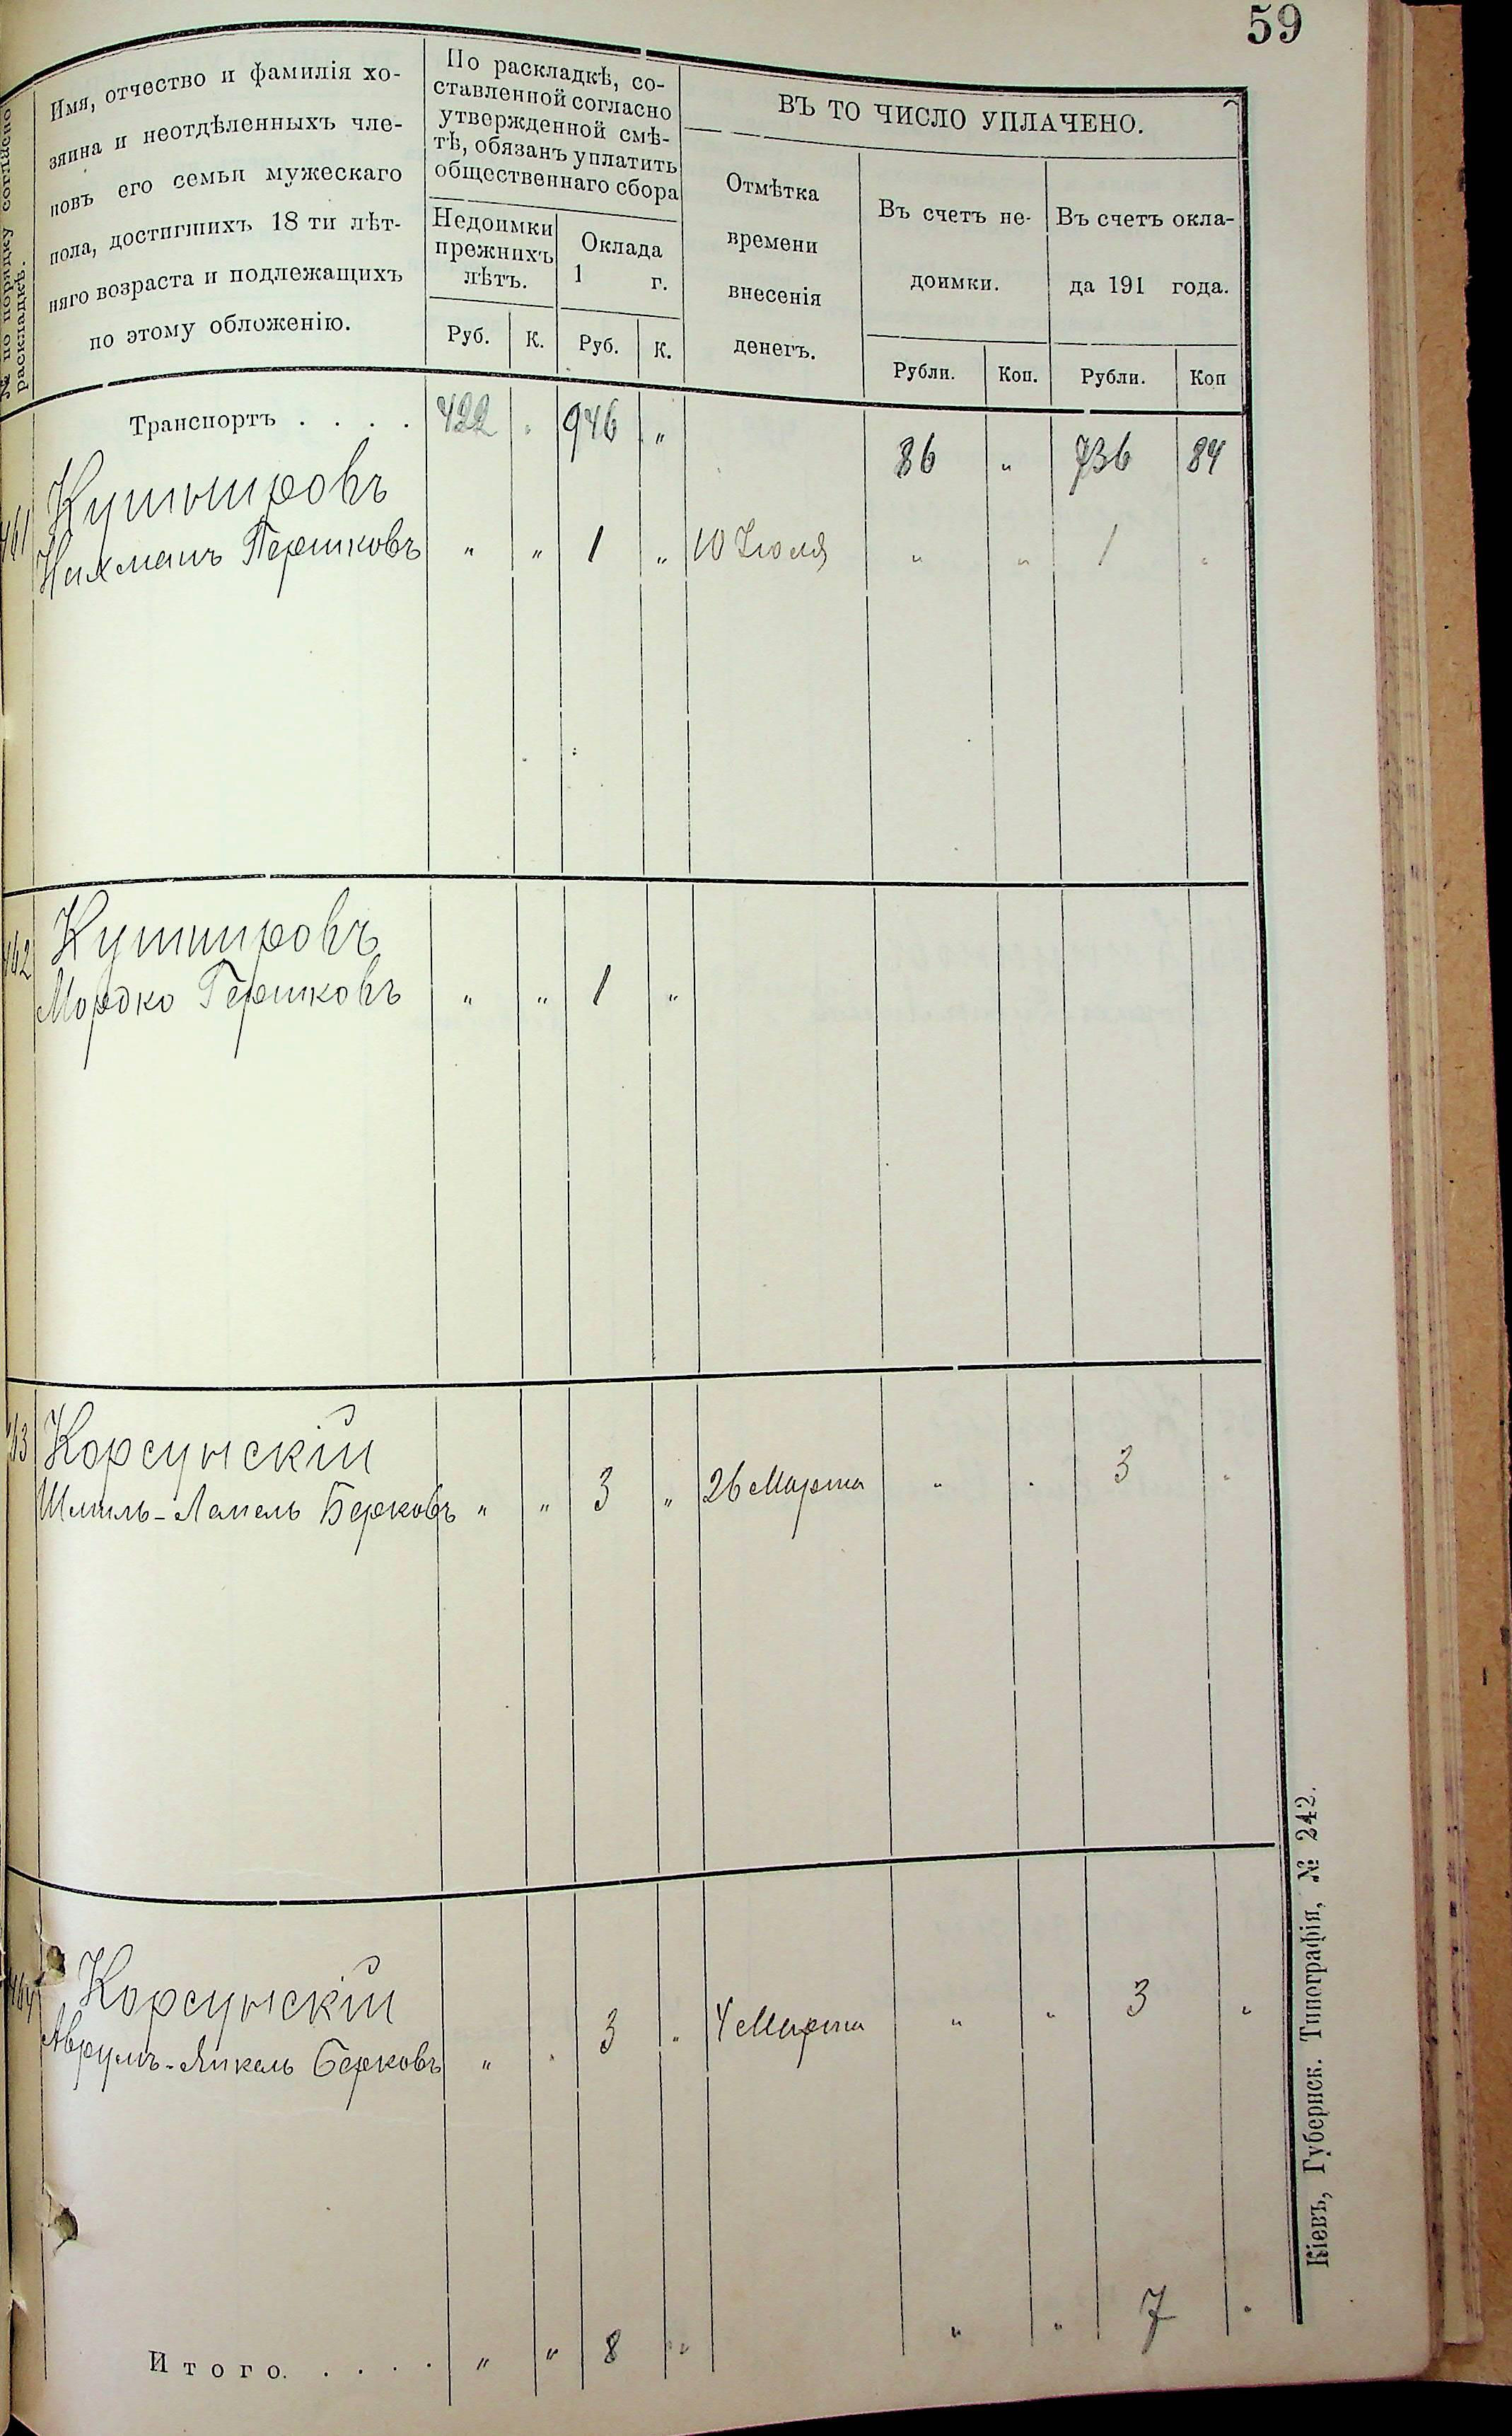 59
№ по порядку согласно
раскладкѣ.
Имя, отчество и фамилія хо-
зяина и неотдѣленныхъ чле-
новъ его семьи мужескаго
пола, достигшихъ 18 ти лѣт-
няго возраста и подлежащихъ
по этому обложенію.
По раскладкѣ, со-
ставленной согласно
утвержденной смѣ-
тѣ, обязанъ уплатить
общественнаго сбора
Недоимки
прежнихъ
лѣтъ.
Оклада
1 г.
Руб. К. Руб. К.
ВЪ ТО ЧИСЛО УПЛАЧЕНО.
Отмѣтка
времени
внесенія
денегъ.
Въ счетъ не-
доимки.
Въ счетъ окла-
да 191 года.
Рубли. Коп. Рубли. Коп
Транспортъ . . . . 422 „ 946 „ 86 „ 736 84
461 Кушнировъ
Нахманъ Гершковъ „ „ 1 „ 10 Іюля „ „ 1 „
462 Кушнировъ
Мордко Гершковъ „ „ 1 „
463 Корсунскій
Шмиль-Лейзель Берковъ „ „ 3 „ 26 Марта „ „ 3 „
464 Корсунскій
Аврумъ-Янкель Берковъ „ „ 3 „ 4 Марта „ „ 3 „
Итого. . . . . „ „ 8 „ „ „ 7 „
Кіевъ, Губернск. Типографія, № 242.